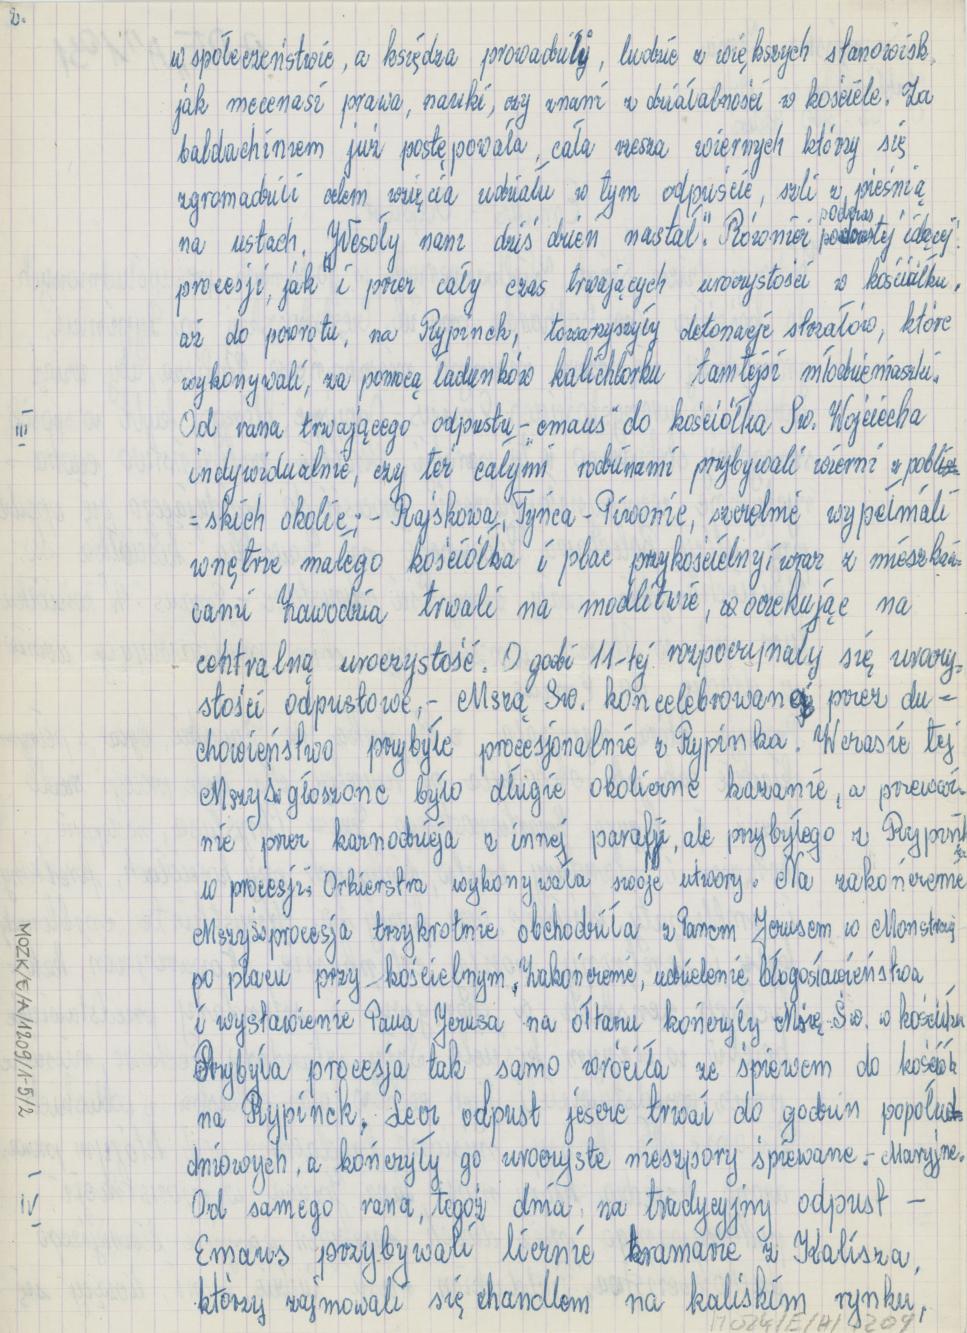 2.
w społeczeństwie, a księdza prowadzili, ludzie z większych stanowisk
jak mecenasi prawa, nauki, czy znani z działalności w kościele. Za
baldachimem już postępowała, cała rzesza wiernych którzy się
zgromadzili celem wzięcia udziału w tym odpuście, szli z pieśnią
na ustach, "Wesoły nam dziś dzień nastał". Również podczas idącej
procesji, jak i przez cały czas trwających uroczystości w kościółku,
aż do powrotu, na Rypinek, towarzyszyły detonacje strzałów, które
wykonywali, za pomocą ładunków kalichlorku tamtejsi młodzieniaszki.
- III -
Od rana trwającego odpustu - "emaus" do kościółka Św. Wojciecha
indywidualnie, czy też całymi rodzinami przybywali wierni z pobli
= skich okolic; - Rajskowa, Tyńca - Piwonic, szczelnie wypełniali
wnętrze małego kościółka i plac przykościelny i wraz z mieszkań=
cami Zawodzia trwali na modlitwie, oczekując na
centralną uroczystość. O godzi 11-tej rozpoczynały się uroczy-
stości odpustowe, - Mszą Św. koncelebrowaną przez du =
chowieństwo przybyłe procesjonalnie z Rypinka. W czasie tej
Mszy Św głoszone było długie okolicne kazanie, a przeważ-
nie przez kaznodzieja z innej parafji, ale przybyłego z Rypinka
w procesji. Orkierstra, wykonywała swoje utwory. Na zakończenie
Mszy Św procesja trzykrotnie obchodziła z Panem Jezusem w Monstracji
po placu przy-kościelnym. Zakończenie, udzielenie błogosławieństwa
i wystawienie Pana Jezusa na ołtarzu kończyły Mszę-Św. w kościółku
Przybyła procesja tak samo wróciła ze śpiewem do kościoła
na Rypinek. Lecz odpust jeszcze trwał do godzin popołud=
dniowych, a kończyły go uroczyste nieszpory śpiewane - Maryjne.
- IV -
Od samego rana, tegoż dnia na tradycyjny odpust -
Emaus przybywali licznie kramarze z Kalisza,
którzy zajmowali się chandlem na kaliskim rynku,
MOZK/E/A/1209/1-5/2
MOZK/E/A/1209